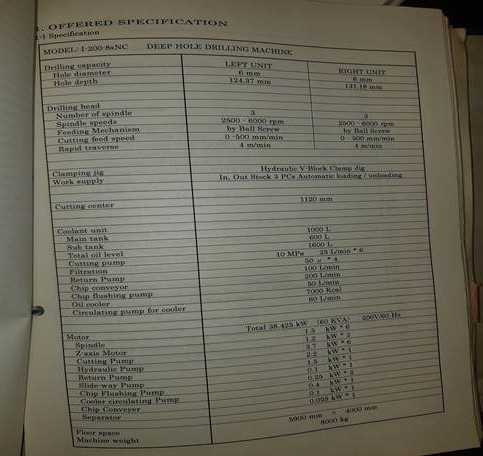 1. OFFERED SPECIFICATION
1-1 Specification
MODEL: I-200-8sNC DEEP HOLE DRILLING MACHINE
LEFT UNIT RIGHT UNIT
Drilling capacity
Hole diameter 6 mm 6 mm
Hole depth 124.37 mm 131.18 mm
Drilling head
Number of spindle 3 3
Spindle speeds 2500 - 6000 rpm 2500 - 6000 rpm
Feeding Mechanism by Ball Screw by Ball Screw
Cutting feed speed 0 -500 mm/min 0 -500 mm/min
Rapid traverse 4 m/min 4 m/min
Clamping jig Hydraulic V-Block Clamp Jig
Work supply In, Out Stock 3 PCs Automatic loading / unloading
Cutting center 1120 mm
Coolant unit
Main tank 1000 L
Sub tank 600 L
Total oil level 1600 L
Cutting pump 10 MPa 25 L/min * 6
Filtration 50 * 4
Return Pump 100 L/min
Chip conveyor 200 L/min
Chip flushing pump 50 L/min
Oil cooler 7000 Kcal
Circulating pump for cooler 60 L/min
Motor Total 38.425 kW (60 KVA) 200V/60 Hz
Spindle 1.5 kW * 6
Z-axis Motor 1.2 kW * 2
Cutting Pump 3.7 kW * 6
Hydraulic Pump 2.2 kW * 1
Return Pump 1.5 kW * 1
Slide-way Pump 0.1 kW * 1
Chip Flushing Pump 0.25 kW
Cooler circulating Pump 0.4 kW * 1
Chip Conveyer 0.1 kW * 1
Separator 0.025 kW * 1
Floor space 5900 mm × 4000 mm
Machine weight 8000 kg